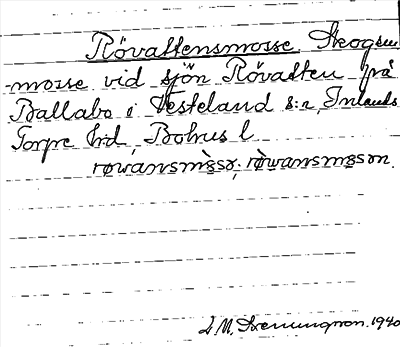 Rövattensmosse Skogsm
-mosse vid sjön Rövatten på
Ballabo i Västerland s:n, Inlands
Torpe hd, Bohus l
røwansms̀sə; rø̀wansmsən.
1940